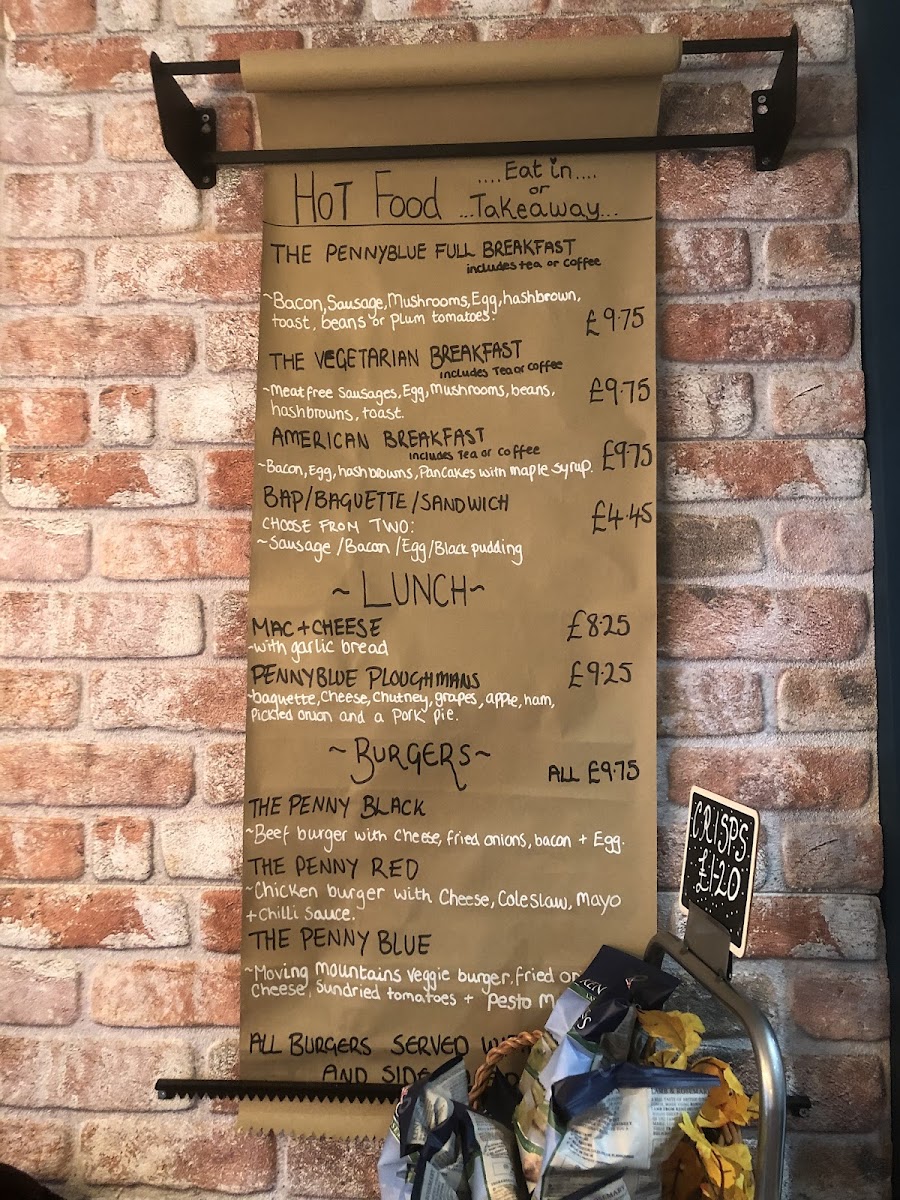 HOT Food
....Eat in....
or
...Takeaway...
THE PENNYBLUE FULL BREAKFAST
includes tea or coffee
~Bacon, Sausage, Mushrooms, Egg, hashbrown,
toast, beans or plum tomatoes.
£9.75
THE VEGETARIAN BREAKFAST
includes Tea or Coffee
~Meatfree Sausages, Egg, Mushrooms, beans,
hashbrowns, toast.
£9.75
AMERICAN BREAKFAST
includes Tea or Coffee
~Bacon, Egg, hashbrowns, Pancakes with maple syrup.
£9.75
BAP/BAGUETTE/SANDWICH
£4.45
CHOOSE FROM TWO:
~Sausage/Bacon/Egg/Black pudding
~LUNCH~
MAC+CHEESE
£8.25
~with garlic bread
PENNYBLUE PLOUGHMANS
£9.25
~baguette, Cheese, Chutney, grapes, apple, ham,
Pickled onion and a Pork pie.
~BURGERS~
ALL £9.75
THE PENNY BLACK
~Beef burger with cheese, fried onions, bacon + Egg.
THE PENNY RED
~Chicken burger with Cheese, Coleslaw, Mayo
+ Chilli Sauce.
THE PENNY BLUE
~Moving Mountains Veggie burger, fried
Cheese, Sundried tomatoes + Pesto
ALL BURGERS SERVED
AND SIDE
CRISPS
£1.20